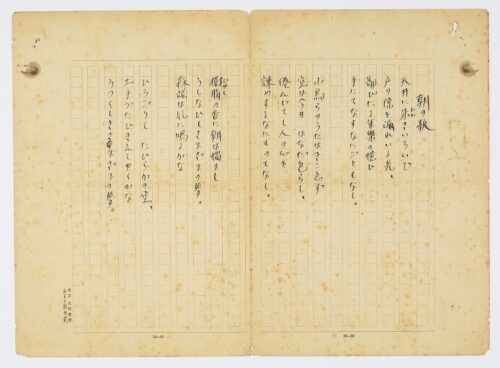 朝の歌
天井に朱きいろいで
戸の隙を漏れいる光、
鄙びたる軍樂の憶ひ
手にてなすなにごともなし。
小鳥らのうたはきこえず
空は今日はなだ色らし、
倦んじてし人の心を
諫めするなにものもなし。
樹脂の香に朝は悩まし
うしなひしさまざまの夢、
森竝は風に鳴るかな
ひろごりてたひらかの空、
土手づたひきえてゆくかな
うつくしきさまざまの夢。